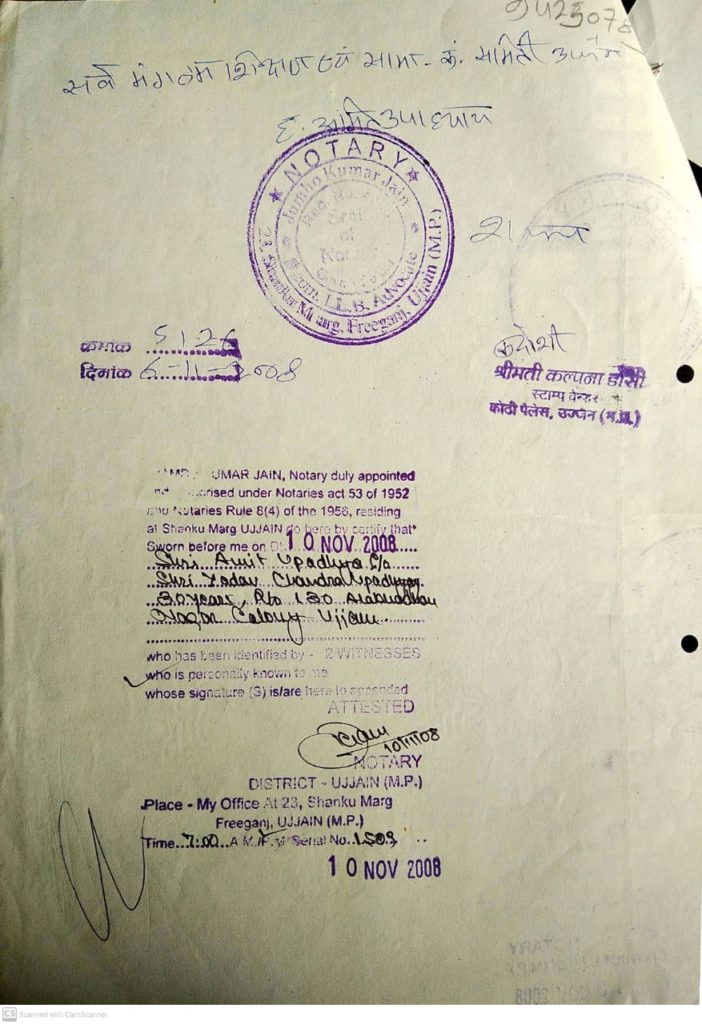 सर्व मंगलम शिक्षण एवं सामा. क. समिती उज्जैन
ह. अमित उपाध्याय
★ NOTARY ★
Jumbo Kumar Jain
Seal
of
Com. LL.B. Advocate
23, Shanku Marg, Freeganj, Ujjain (M.P.)
क्रमांक 5126
दिनांक 6-11-2008
श्रीमती कल्पना डोसी
स्टाम्प वेन्डर
कोठी पैलेस, उज्जैन (म.प्र.)
UMAR JAIN, Notary duly appointed
under Notaries act 53 of 1952
and Notaries Rule 8(4) of the 1956, residing
at Shanku Marg UJJAIN do here by certify that
Sworn before me on 10 NOV 2008
Shri Amit Upadhya
Shri Yadav Chandra Upadhyay
30 year, R/o 130
Nagar Colony Ujjain
who has been identified by - 2 WITNESSES
who is personally known to me
whose signature (S) is/are here to appended
ATTESTED
10/11/08
NOTARY
DISTRICT - UJJAIN (M.P.)
Place - My Office At 23, Shanku Marg
Freeganj, UJJAIN (M.P.)
Time 7:00 A.M./P.M Serial No. 1509
10 NOV 2008
CS Scanned with CamScanner